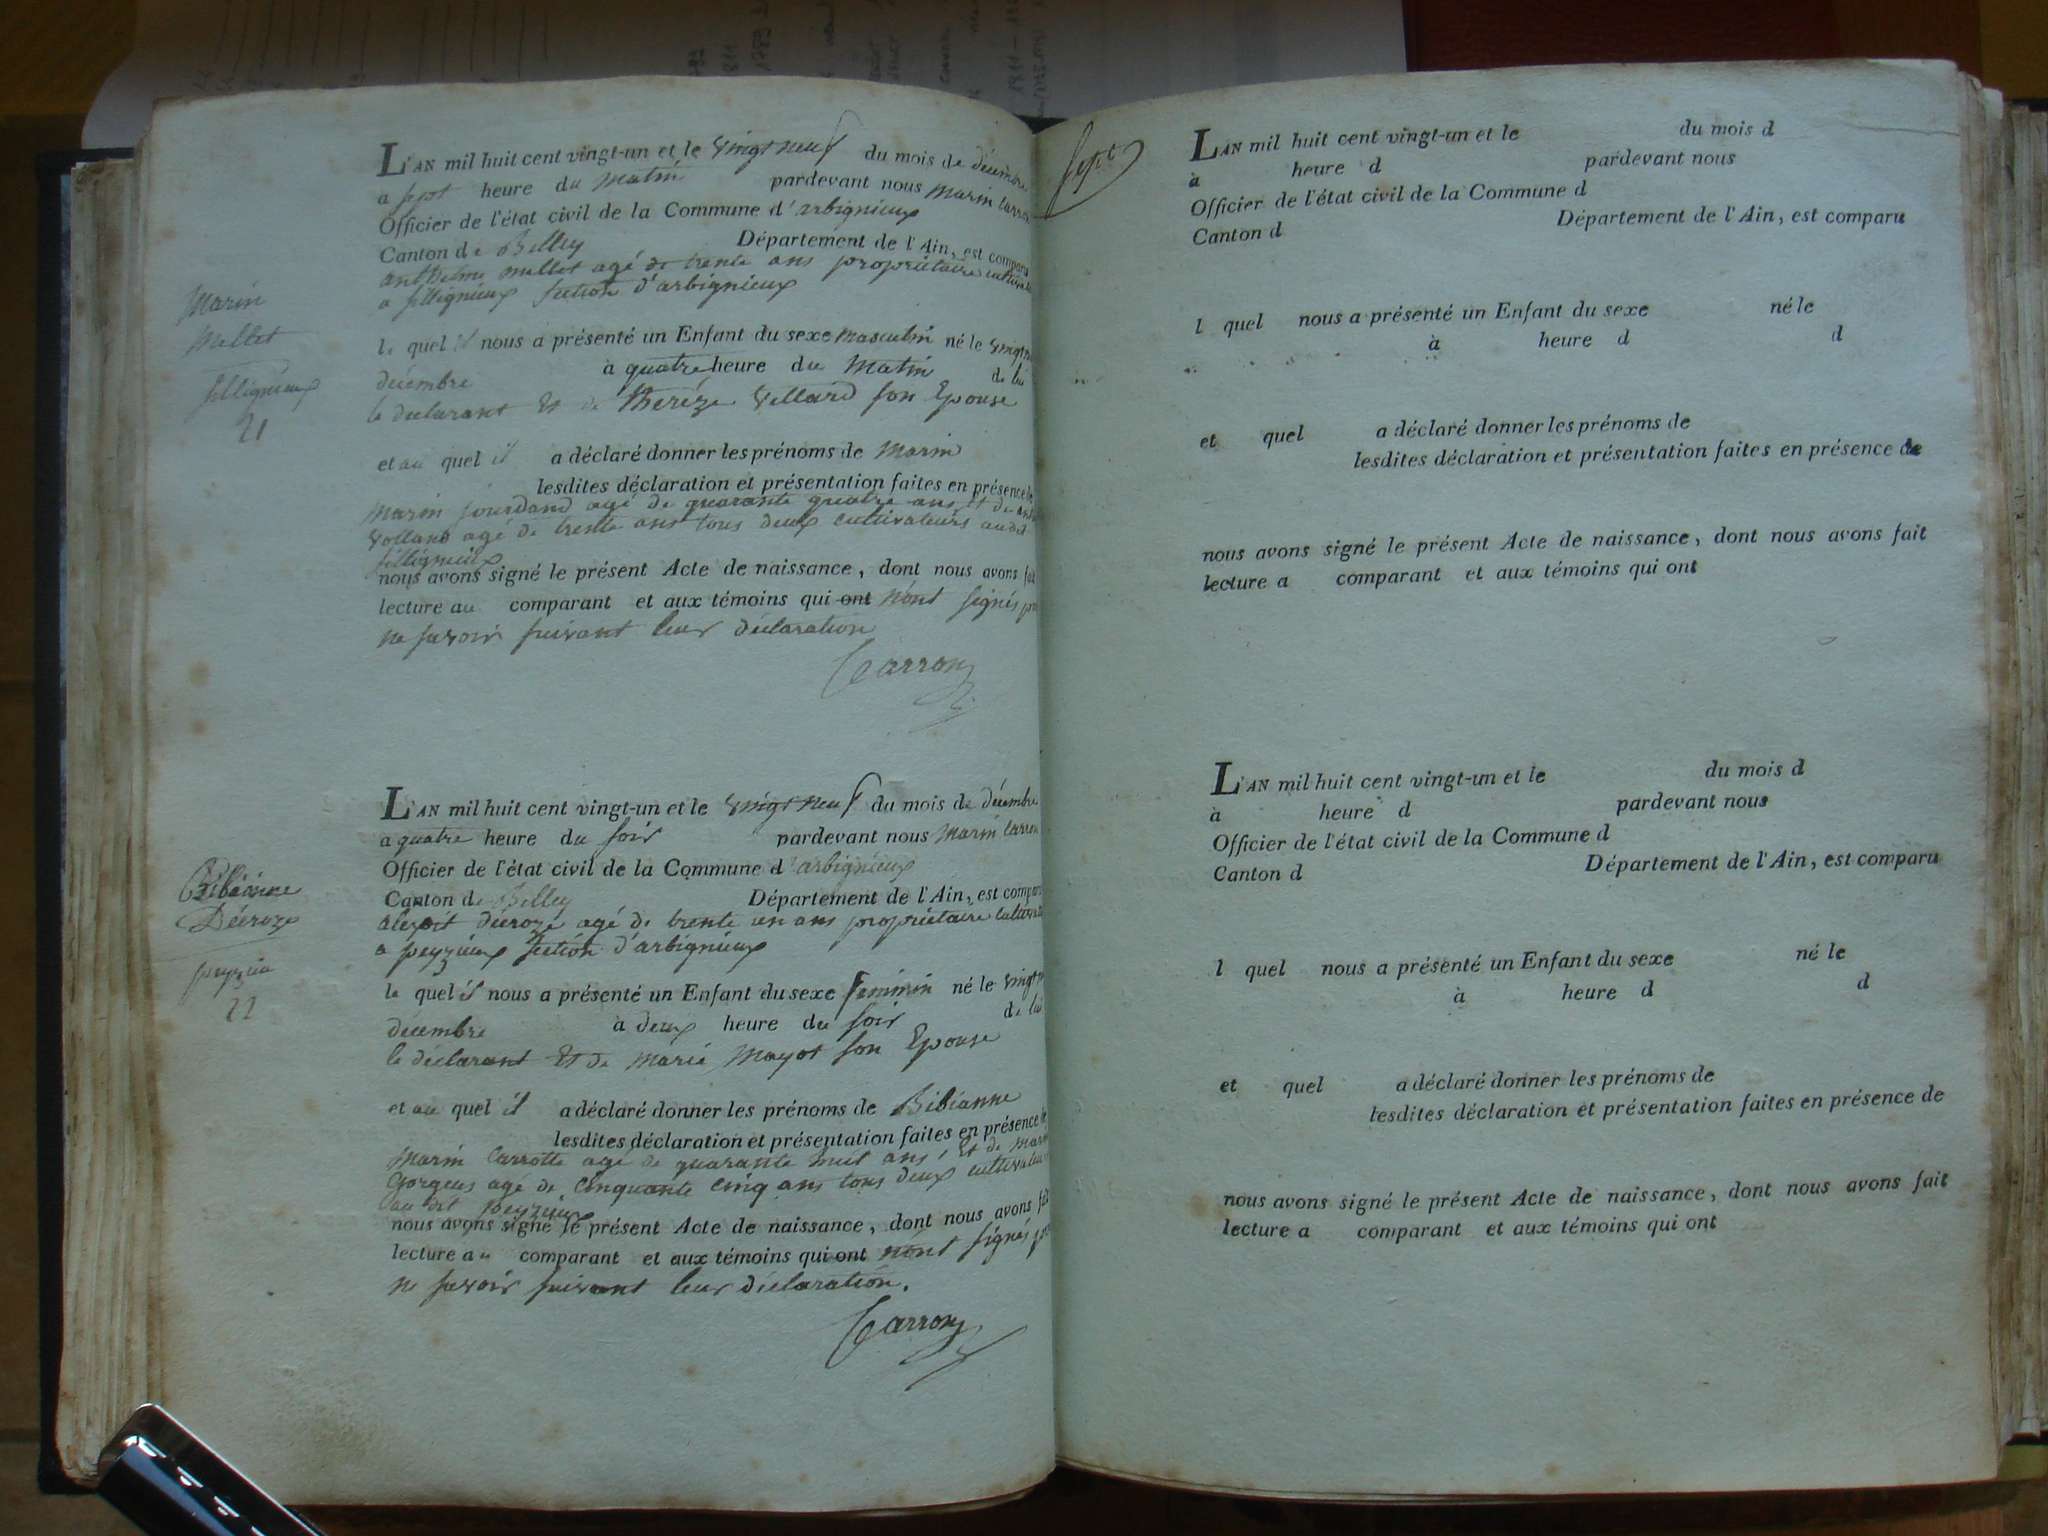 L'AN mil huit cent vingt-un et le vingt neuf du mois de décembre
a sept heure du matin pardevant nous marin Carron
Officier de l'état civil de la Commune d'arbignieux
Canton de Belley Département de l'Ain, est comparu
anthelme millet agé de trente ans propriétaire
a sillignieux section d'arbignieux
Marin
Millet
sillignieux
21
le quel il nous a présenté un Enfant du sexe masculin né le
décembre à quatre heure du Matin de lui
le declarant Et de thereze vellard son Epouse
et au quel il a déclaré donner les prénoms de marin
lesdites déclaration et présentation faites en présence de
marin jourdand agé de quarante quatre ans et de
volland agé de trente ans tous deux cultivateurs audit
sillignieux
nous avons signé le présent Acte de naissance, dont nous avons fait
lecture au comparant et aux témoins qui ont n'ont signés pour
ne savoir suivant leur déclaration
Carron
L'AN mil huit cent vingt-un et le vingt neuf du mois de décembre
a quatre heure du soir pardevant nous marin Carron
Officier de l'état civil de la Commune d'arbignieux
Canton de Belley Département de l'Ain, est comparu
décroze agé de trente un ans propriétaire
a peyzieux section d'arbignieux
Bibianne
Décroze
peyzieu
22
le quel il nous a présenté un Enfant du sexe feminin né le
décembre à deux heure du soir de lui
le déclarant Et de marie mayot son Epouse
et au quel il a déclaré donner les prénoms de Bibianne
lesdites déclaration et présentation faites en présence de
marin Carrotte agé de quarante huit ans, Et de
Gorgeus agé de cinquante cinq ans tous deux cultivateurs
au dit peyzieux
nous avons signé le présent Acte de naissance, dont nous avons fait
lecture au comparant et aux témoins qui ont n'ont signés pour
ne savoir suivant leur déclaration.
Carron
sept
L'AN mil huit cent vingt-un et le du mois d
à heure d pardevant nous
Officier de l'état civil de la Commune d
Canton d Département de l'Ain, est comparu
l quel nous a présenté un Enfant du sexe né le
à heure d d
et quel a déclaré donner les prénoms de
lesdites déclaration et présentation faites en présence de
nous avons signé le présent Acte de naissance, dont nous avons fait
lecture a comparant et aux témoins qui ont
L'AN mil huit cent vingt-un et le du mois d
à heure d pardevant nous
Officier de l'état civil de la Commune d
Canton d Département de l'Ain, est comparu
l quel nous a présenté un Enfant du sexe né le
à heure d d
et quel a déclaré donner les prénoms de
lesdites déclaration et présentation faites en présence de
nous avons signé le présent Acte de naissance, dont nous avons fait
lecture a comparant et aux témoins qui ont